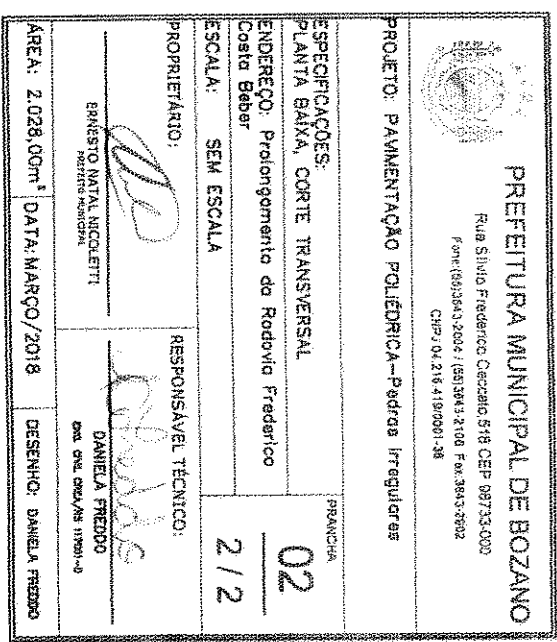 PREFEITURA MUNICIPAL DE BOZANO
Rua Silvio Frederico Ceccato, 518 CEP 98733-000
Fone:(55)3643-2004 / (55)3643-2100 Fax.3643-2002
CNPJ 04.216.419/0001-38
PROJETO: PAVIMENTAÇÃO POLIÉDRICA-Pedras irregulares
ESPECIFICAÇÕES:
PLANTA BAIXA, CORTE TRANSVERSAL
ENDEREÇO: Prolongamento da Rodovia Frederico
Costa Beber
PRANCHA
02
ESCALA: SEM ESCALA
2/2
PROPRIETÁRIO:
ERNESTO NATAL NICOLETTI
PREFEITO MUNICIPAL
RESPONSÁVEL TÉCNICO:
DANIELA FREDDO
ENG. CIVIL CREA/RS
ÁREA: 2.028,00m² DATA: MARÇO/2018 DESENHO: DANIELA FREDDO